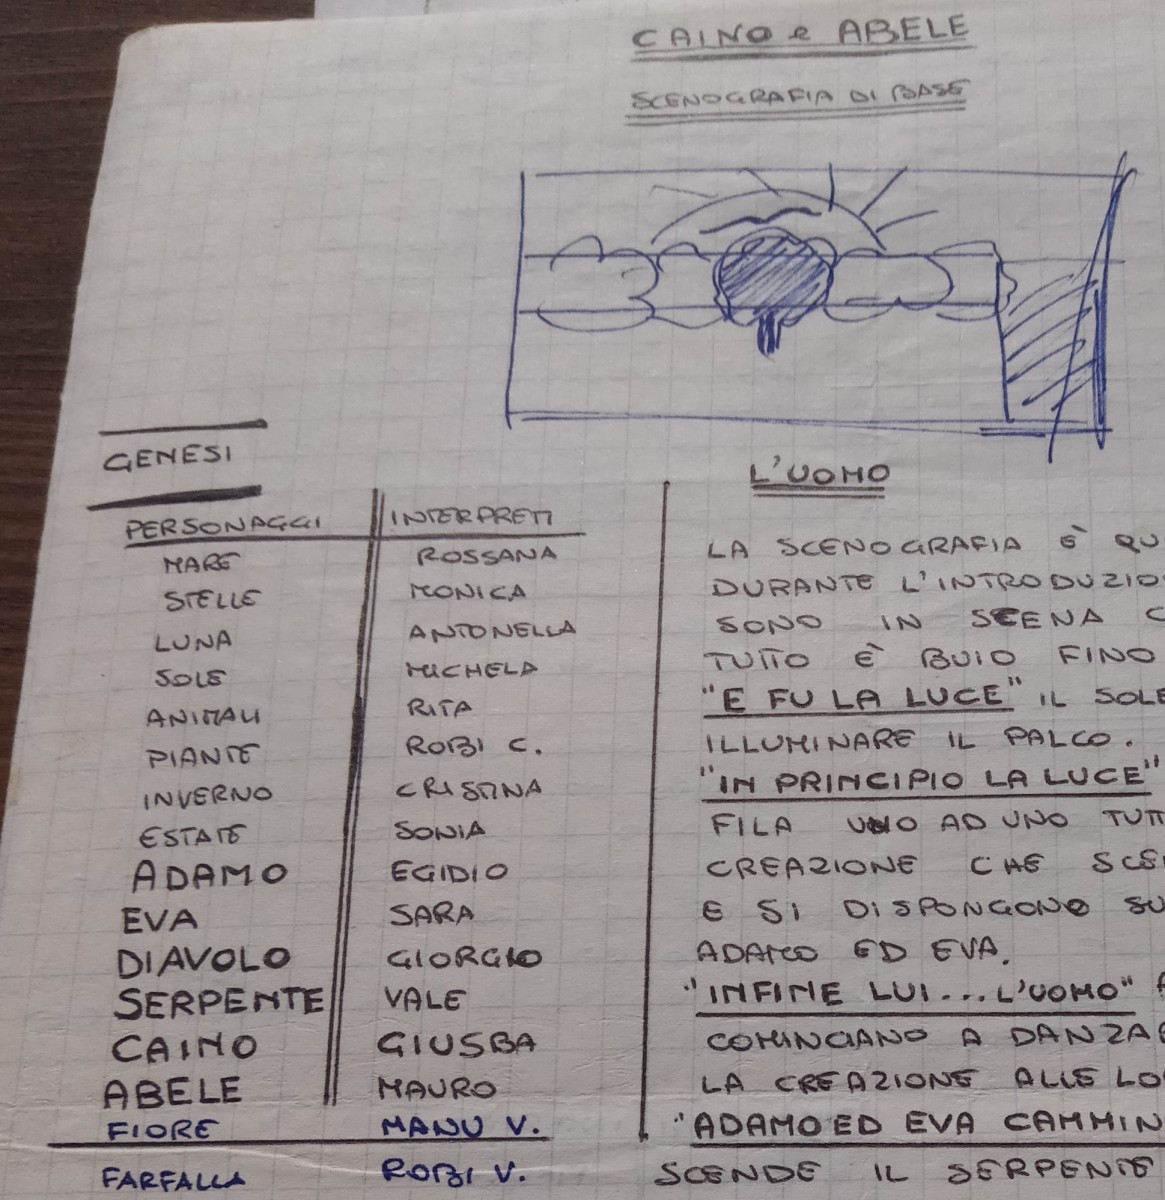 CAINO e ABELE
SCENOGRAFIA DI BASE
GENESI
PERSONAGGI INTERPRETI
MARE ROSSANA
STELLE MONICA
LUNA ANTONELLA
SOLE MICHELA
ANIMALI RITA
PIANTE ROBI C.
INVERNO CRISTINA
ESTATE SONIA
ADAMO EGIDIO
EVA SARA
DIAVOLO GIORGIO
SERPENTE VALE
CAINO GIUSBA
ABELE MAURO
FIORE MANU V.
FARFALLA ROBI V.
L'UOMO
LA SCENOGRAFIA È QU
DURANTE L'INTRODUZIO
SONO IN SCENA C
TUTTO È BUIO FINO
"E FU LA LUCE" IL SOLE
ILLUMINARE IL PALCO.
"IN PRINCIPIO LA LUCE"
FILA UNO AD UNO TUTT
CREAZIONE CHE SCE
E SI DISPONGONO SU
ADAMO ED EVA.
"INFINE LUI...L'UOMO"
COMINCIANO A DANZA
LA CREAZIONE ALLE LO
"ADAMO ED EVA CAMMIN
SCENDE IL SERPENTE